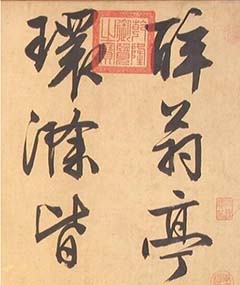 醉翁亭
環滁皆